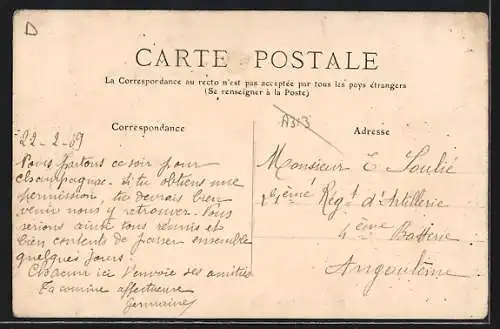 D
CARTE POSTALE
La Correspondance au recto n'est pas acceptée par tous les pays étrangers
(Se renseigner à la Poste)
A313
Correspondance
Adresse
22-2-09
Nous partons ce soir pour
Champagnac. Si tu obtiens une
permission, tu devrais bien
venir nous y retrouver. Nous
serions ainsi tous réunis et
bien contents de passer ensemble
quelques jours.
Chacun ici t'envoie ses amitiés
Ta cousine affectueuse
Germaine
Monsieur E. Soulié
21ème Régt d'Artillerie
4ème Batterie
Angoulême